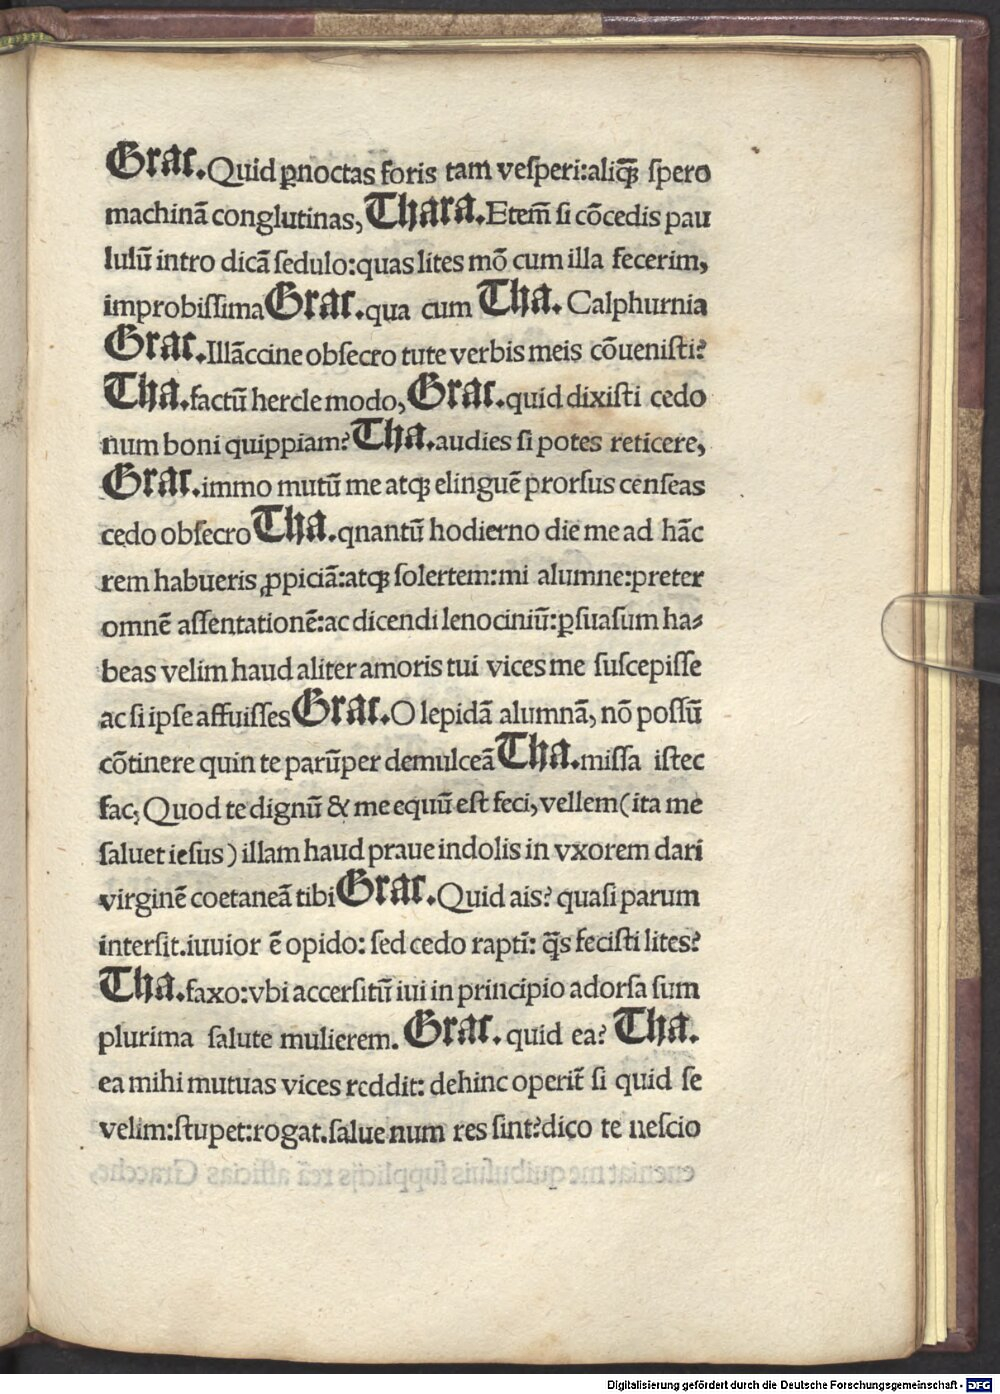 Grac.Quid ꝑnoctas foris tam vesperi:aliꝗ̃ spero
machinã conglutinas,Thara.Etem̃ si cõcedis pau
lulũ intro dicã sedulo:quas lites mõ cum illa fecerim,
improbissima Grac.qua cum Tha. Calphurnia
Grac.Illãccine obsecro tute verbis meis cõuenisti?
Tha.factũ hercle modo,Grac.quid dixisti cedo
num boni quippiam?Tha.audies si potes reticere,
Grac.immo mutũ me atqꝫ elinguẽ prorsus censeas
cedo obsecro Tha.qnantũ hodierno die me ad hãc
rem habueris ꝓpiciã:atqꝫ solertem:mi alumne:preter
omnẽ assentationẽ:ac dicendi lenociniũ:ꝑsuasum ha⸗
beas velim haud aliter amoris tui vices me suscepisse
ac si ipse affuisses Grac.O lepidã alumnã,nõ possũ
cõtinere quin te parũper demulceã Tha.missa istec
fac,Quod te dignũ & me equũ est feci,vellem(ita me
saluet iesus)illam haud praue indolis in vxorem dari
virginẽ coetaneã tibi Grac.Quid ais? quasi parum
intersit.iuuior ẽ opido: sed cedo raptĩ: ꝗ̃s fecisti lites?
Tha.faxo:vbi accersitũ iui in principio adorsa sum
plurima salute mulierem. Grac. quid ea? Tha.
ea mihi mutuas vices reddit: dehinc operit̃ si quid se
velim:stupet:rogat.salue num res sint?dico te nescio
Digitalisierung gefördert durch die Deutsche Forschungsgemeinschaft - DFG